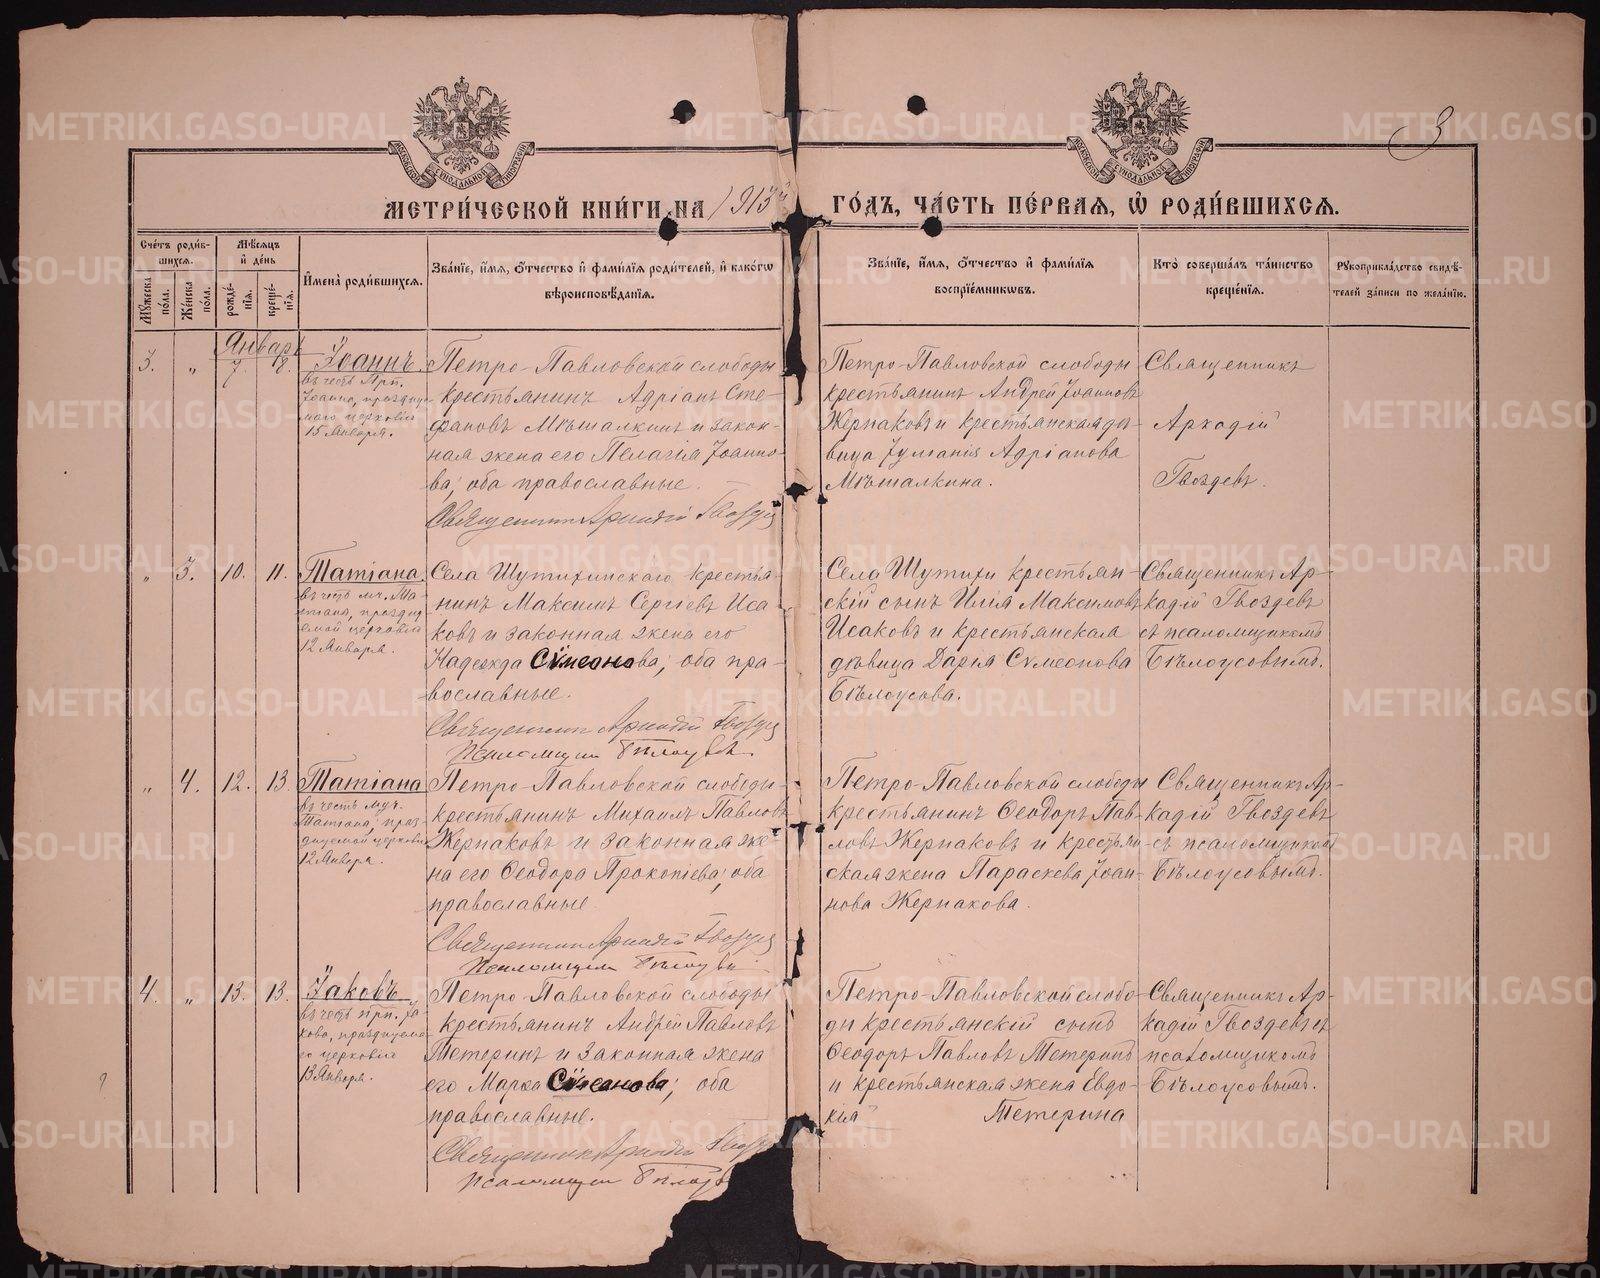 3
МОСКОВСКОЙ СѴНОДАЛЬНОЙ ТИПОГРАФІИ
МОСКОВСКОЙ СѴНОДАЛЬНОЙ ТИПОГРАФІИ
МЕТРИ́ЧЕСКОЙ КНИ́ГИ НА 1913й ГО́ДЪ, ЧА́СТЬ ПЕ́РВАЯ, Ѡ҆ РОДИ́ВШИХСЯ.
Сче́тъ роди́в-
шихся.
Мꙋжеска по́ла.
Же́нска по́ла.
Мѣ́сяцъ
и҆ де́нь
рожде́-
нїя.
креще́-
нїя.
И҆мена̀ роди́вшихся.
Зва́нїе, и҆́мя, ѻ҆́тчество и҆ фами́лїя роди́телей, и҆ како́гѡ
вѣроисповѣ́данїя.
Зва́нїе, и҆́мя, ѻ҆́тчество и҆ фами́лїя
воспрїе́мникѡвъ.
Кто̀ соверша́лъ та́инство
креще́нїя.
Рꙋкоприкла́дство свидѣ́-
телей за́писи по жела́нїю.
Январь
3. " 7. 18.
Іоаннъ
въ честь Прп.
Іоанна, праздну-
емаго церковію
15 Января.
Петро-Павловской слободы
крестьянинъ Адріанъ Сте-
фановъ Мѣшалкинъ и закон-
ная жена его Пелагія Іоанно-
ва; оба православные.
Священникъ Аркадій Гвоздев
Петро-Павловской слободы
крестьянинъ Андрей Іоанновъ
Жернаковъ и крестьянская дѣ-
вица Іуліанія Адріанова
Мѣшалкина.
Священникъ
Аркадій
Гвоздевъ.
" 3. 10. 11.
Татіана
въ честь мч. Та-
тіаны, праздну-
емой церковію
12 Января.
Села Шутихинскаго крестья-
нинъ Максимъ Сергіевъ Иса-
ковъ и законная жена его
Надежда Сѵмеонова; оба пра-
вославные.
Священникъ Аркадій Гвоздев
Псаломщикъ Бѣлоусовъ
Села Шутихи крестьян-
скій сынъ Илія Максимовъ
Исаковъ и крестьянская
дѣвица Дарія Сѵмеонова
Бѣлоусова.
Священникъ Ар-
кадій Гвоздевъ
съ псаломщикомъ
Бѣлоусовымъ.
" 4. 12. 13.
Татіана
въ честь муч.
Татіаны, праз-
днуемой церковію
12 Января.
Петро-Павловской слободы
крестьянинъ Михаилъ Павловъ
Жернаковъ и законная же-
на его Ѳеодора Прокопіева; оба
православные
Священникъ Аркадій Гвоздев
Псаломщикъ Бѣлоусовъ
Петро-Павловской слободы
крестьянинъ Ѳеодоръ Пав-
ловъ Жернаковъ и крестьян-
ская жена Параскева Іоан-
нова Жернакова.
Священникъ Ар-
кадій Гвоздевъ
съ псаломщикомъ
Бѣлоусовымъ.
4. " 13. 13.
Іаковъ
въ честь прп. Іа-
кова, праздцуема-
го церковію
13 Января.
Петро-Павловской слободы
крестьянинъ Андрей Павловъ
Тетеринъ и законная жена
его Марѳа Сѵмеонова; оба
православные.
Священникъ Аркадій Гвозд
Псаломщикъ Бѣлоусо
Петро-Павловской слобо-
ды крестьянскій сынъ
Ѳеодоръ Павловъ Тетеринъ
и крестьянская жена Евдо-
кія Тетерина
Священникъ Ар-
кадій Гвоздевъ съ
псаломщикомъ
Бѣлоусовымъ.
METRIKI.GASO-URAL.RU